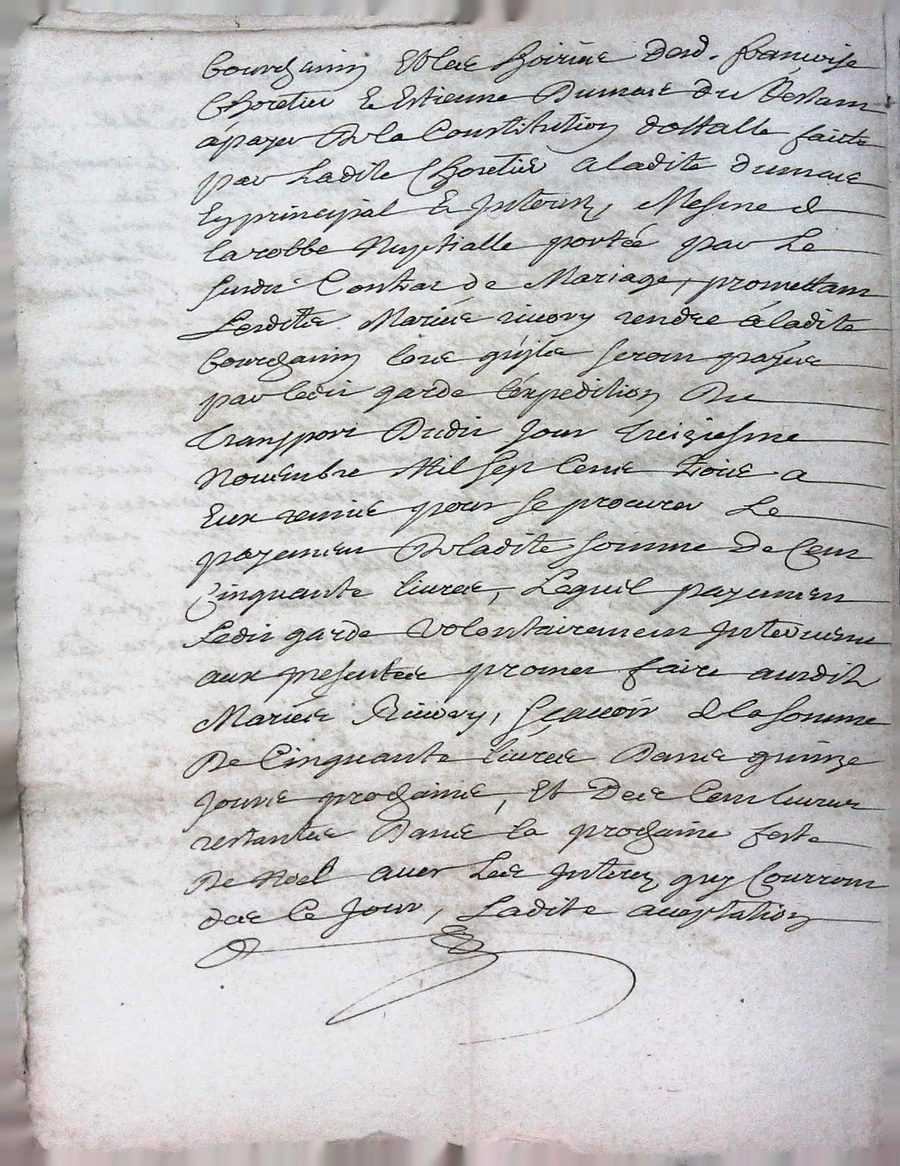 bourdhainy Et les hoiries Desd. francoise
Choretier Et Estienne Dumas du Restam
a payer De la Constitution dottalle faitte
par Ladite Choretier a ladite dumas
En principal Et Interets, Mesme de
la robbe Nuptialle portée par Le
susdit Contrat de Mariage, promettam
Lesdits Mariés ricovy rendre a ladite
bourdhainy lors quils seront payés
par ledit garde l'expedition Du
transport Dudit Jour treiziesme
Novembre Mil Sept Cens Trois a
Eux remis pour se procurer Le
payemen De ladite somme de Cent
Cinquante livres, Lequel payemen
Ledit garde Volontairement Intervenu
aux presentes promet faire ausdits
Mariés Ricovy, Sçavoir de la somme
De Cinquante livres Dans quinze
Jours prochains, Et Des Cent livres
restantes Dans la prochaine feste
De Noel avec Les Interets quy Courront
des Ce Jour, Ladite acceptation